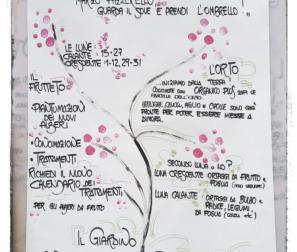 GUARDA IL SOLE E PRENDI L'OMBRELLO
LE LUNE:
CALANTE: 15-27
CRESCENTE 1-12, 29-31
IL
FRUTTETO
PIANTUMAZIONI
DEI NOVI
ALBERI
CONCIMAZIONE
TRATTAMENTI
RICHIEDI IL NUOVO
CALENDARIO DEI
TRATTAMENTI
PER GLI ALBERI DA FRUTTO
L'ORTO
INIZIAMO DALLA TERRA
CONCIMATE CON ORGANICO PLUS
AGLIO E CIPOLLE SONO GIÀ
PRONTE PER POTER ESSERE MESSE A
DIMORA.
SECONDO LUNA O NO?
LUNA CRESCENTE ORTAGGI DA FRUTTO E
FOGLIA
LUNA CALANTE: ORTAGGI DA BULBO E
RADICE, LEGUMI
DA FOGLIA
IL GIARDINO